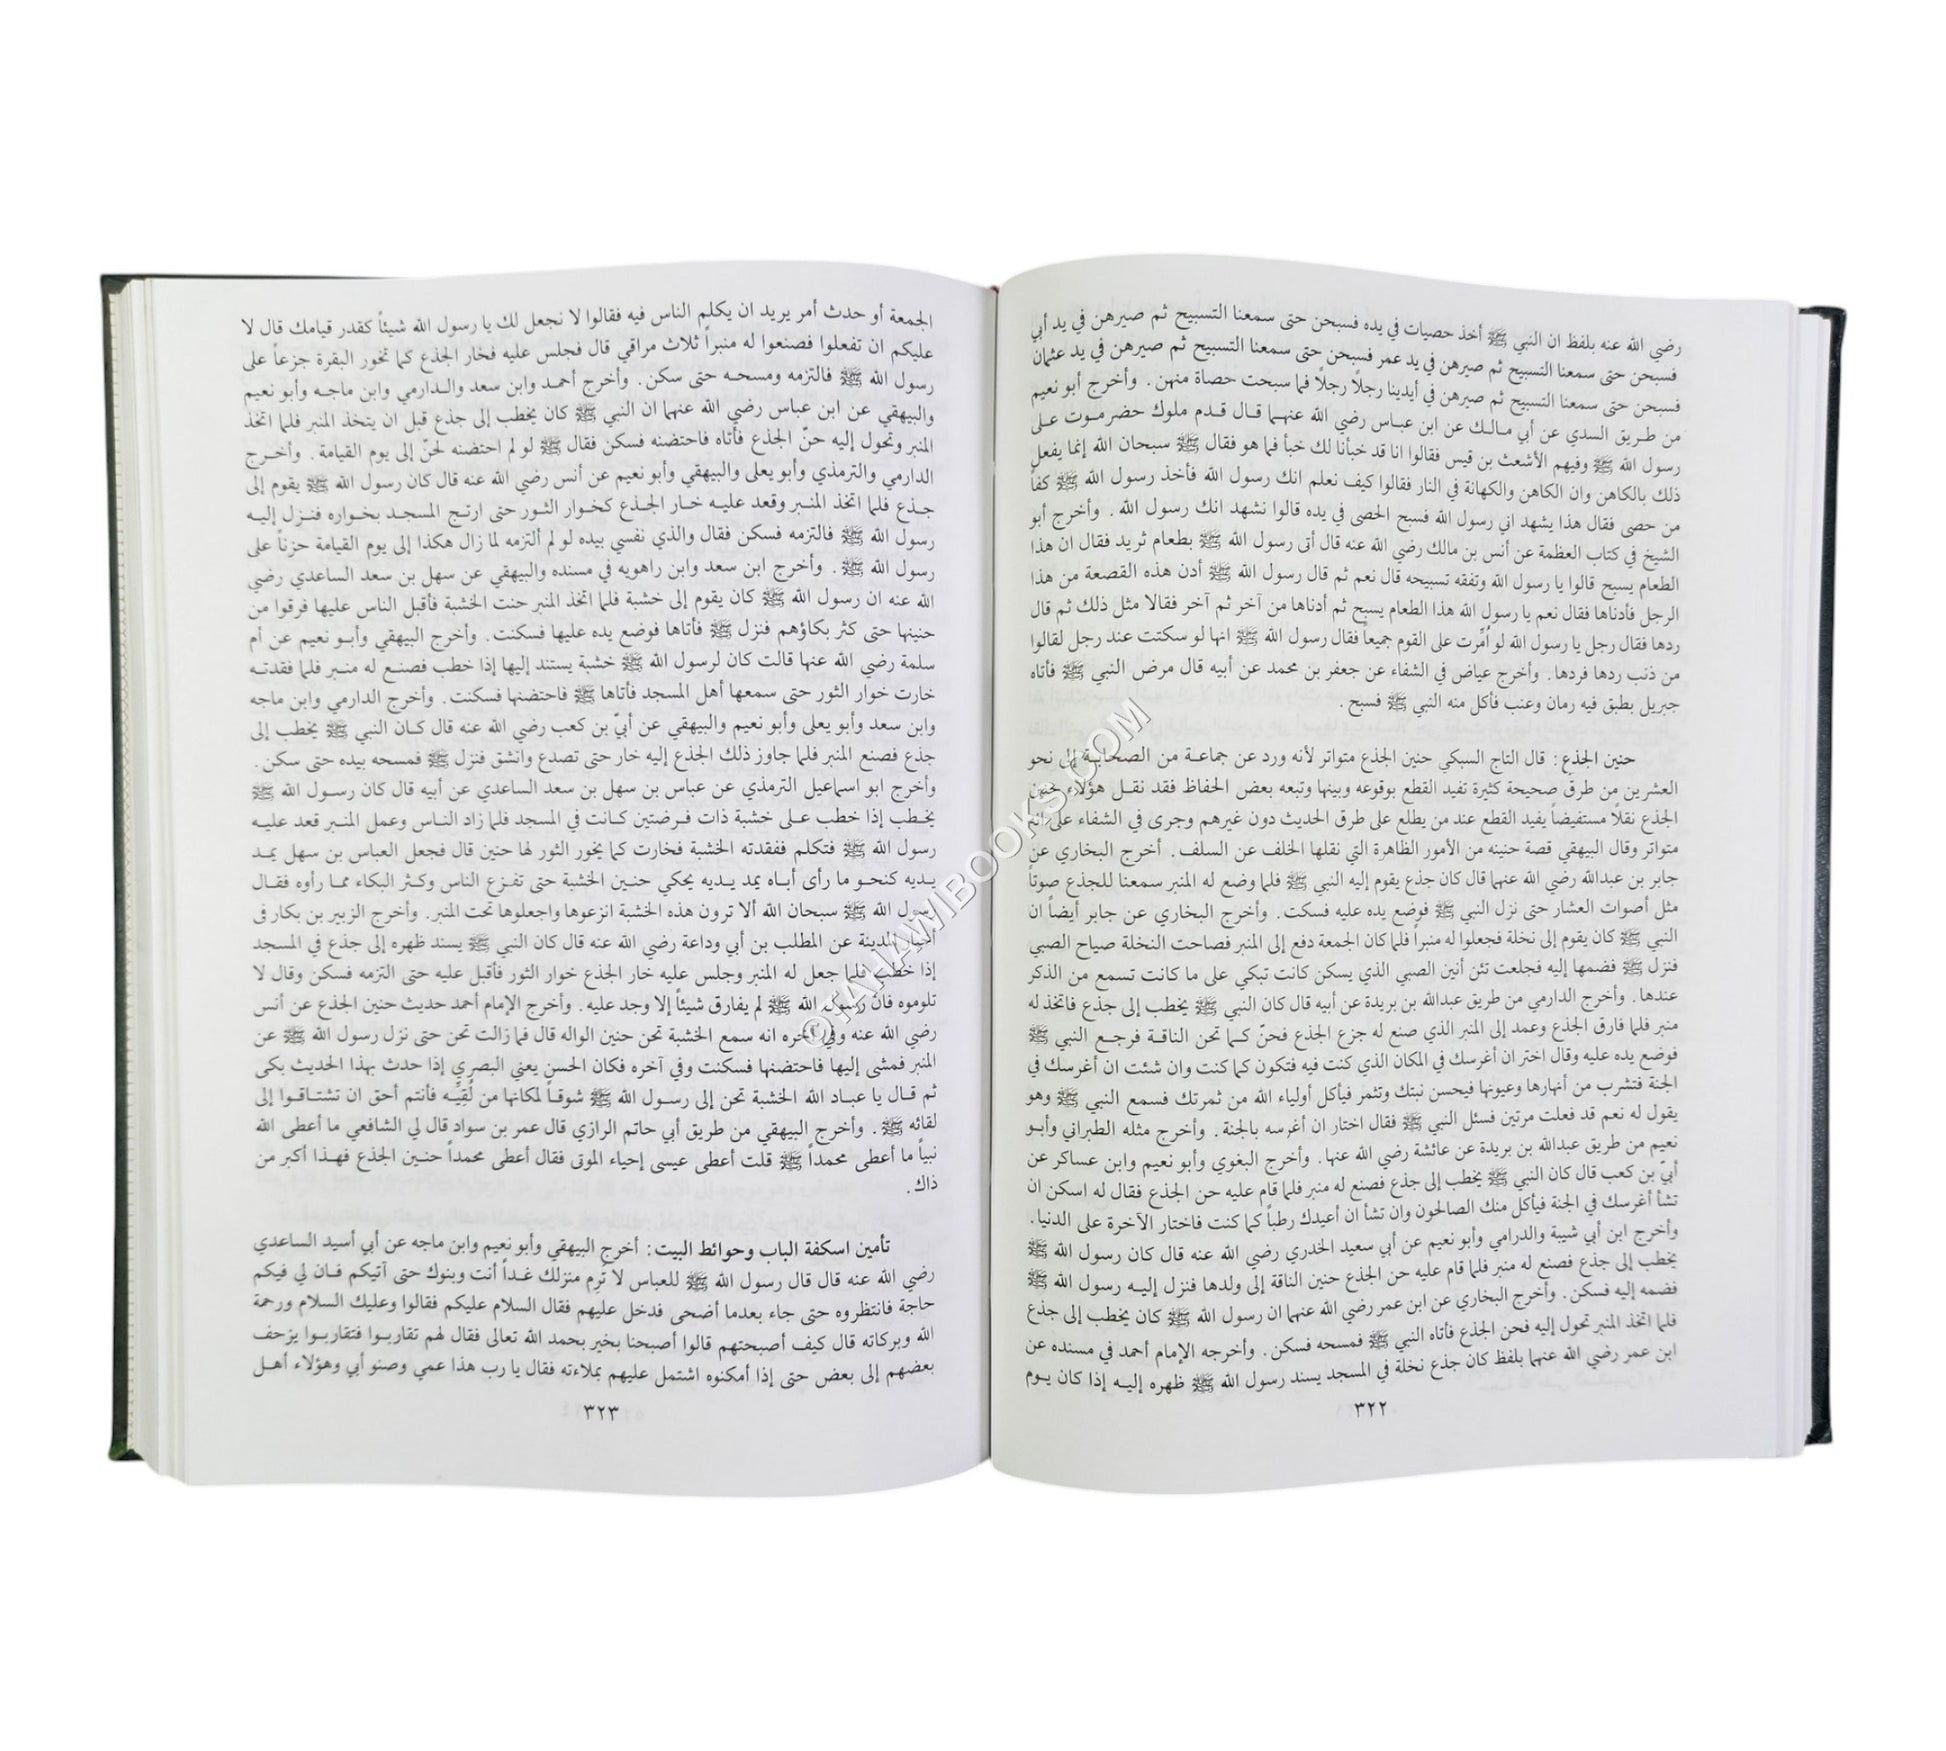 رضي الله عنه بلفظ ان النبي ﷺ أخذ حصيات في يده فسبحن حتى سمعنا التسبيح ثم صيرهن في يد أبي
فسبحن حتى سمعنا التسبيح ثم صيرهن في يد عمر فسبحن حتى سمعنا التسبيح ثم صيرهن في يد عثمان
فسبحن حتى سمعنا التسبيح ثم صيرهن في أيدينا رجلاً رجلاً فما سبحت حصاة منهن . وأخرج أبو نعيم
من طريق السدي عن أبي مالك عن ابن عباس رضي الله عنهما قال قدم ملوك حضرموت على
رسول الله ﷺ وفيهم الأشعث بن قيس فقالوا انا قد خبأنا لك خبأ فما هو فقال ﷺ سبحان الله إنما يفعل
ذلك بالكاهن وان الكاهن والكهانة في النار فقالوا كيف نعلم انك رسول الله فأخذ رسول الله ﷺ كفاً
من حصى فقال هذا يشهد اني رسول الله فسبح الحصى في يده قالوا نشهد انك رسول الله . وأخرج أبو
الشيخ في كتاب العظمة عن أنس بن مالك رضي الله عنه قال أتى رسول الله ﷺ بطعام ثريد فقال ان هذا
الطعام يسبح قالوا يا رسول الله وتفقه تسبيحه قال نعم ثم قال رسول الله ﷺ أدن هذه القصعة من هذا
الرجل فأدناها فقال نعم يا رسول الله هذا الطعام يسبح ثم أدناها من آخر ثم آخر فقالا مثل ذلك ثم قال
ردها فقال رجل يا رسول الله لو أُمِّرت على القوم جميعاً فقال رسول الله ﷺ انها لو سكتت عند رجل لقالوا
من ذنب ردها فردها. وأخرج عياض في الشفاء عن جعفر بن محمد عن أبيه قال مرض النبي ﷺ فأتاه
جبريل بطبق فيه رمان وعنب فأكل منه النبي ﷺ فسبح .
حنين الجذع: قال التاج السبكي حنين الجذع متواتر لأنه ورد عن جماعة من الصحابة إلى نحو
العشرين من طرق صحيحة كثيرة تفيد القطع بوقوعه وبينها وتبعه بعض الحفاظ فقد نقل هؤلاء حنين
الجذع نقلاً مستفيضاً يفيد القطع عند من يطلع على طرق الحديث دون غيرهم وجرى في الشفاء على انه
متواتر وقال البيهقي قصة حنينه من الأمور الظاهرة التي نقلها الخلف عن السلف. أخرج البخاري عن
جابر بن عبدالله رضي الله عنهما قال كان جذع يقوم إليه النبي ﷺ فلما وضع له المنبر سمعنا للجذع صوتاً
مثل أصوات العشار حتى نزل النبي ﷺ فوضع يده عليه فسكت. وأخرج البخاري عن جابر أيضاً ان
النبي ﷺ كان يقوم إلى نخلة فجعلوا له منبراً فلما كان الجمعة دفع إلى المنبر فصاحت النخلة صياح الصبي
فنزل ﷺ فضمها إليه فجلعت تئن أنين الصبي الذي يسكن كانت تبكي على ما كانت تسمع من الذكر
عندها. وأخرج الدارمي من طريق عبدالله بن بريدة عن أبيه قال كان النبي ﷺ يخطب إلى جذع فاتخذ له
منبر فلما فارق الجذع وعمد إلى المنبر الذي صنع له جزع الجذع فحنّ كما تحن الناقة فرجع النبي ﷺ
فوضع يده عليه وقال اختر ان أغرسك في المكان الذي كنت فيه فتكون كما كنت وان شئت ان أغرسك في
الجنة فتشرب من أنهارها وعيونها فيحسن نبتك وتثمر فيأكل أولياء الله من ثمرتك فسمع النبي ﷺ وهو
يقول له نعم قد فعلت مرتين فسئل النبي ﷺ فقال اختار ان أغرسه بالجنة. وأخرج مثله الطبراني وأبو
نعيم من طريق عبدالله بن بريدة عن عائشة رضي الله عنها. وأخرج البغوي وأبو نعيم وابن عساكر عن
أبيّ بن كعب قال كان النبي ﷺ يخطب إلى جذع فصنع له منبر فلما قام عليه حن الجذع فقال له اسكن ان
تشأ أغرسك في الجنة فيأكل منك الصالحون وان تشأ ان أعيدك رطباً كما كنت فاختار الآخرة على الدنيا.
وأخرج ابن أبي شيبة والدرامي وأبو نعيم عن أبي سعيد الخدري رضي الله عنه قال كان رسول الله ﷺ
يخطب إلى جذع فصنع له منبر فلما قام عليه حن الجذع حنين الناقة إلى ولدها فنزل إليه رسول الله ﷺ
فضمه إليه فسكن. وأخرج البخاري عن ابن عمر رضي الله عنهما ان رسول الله ﷺ كان يخطب إلى جذع
فلما اتخذ المنبر تحول إليه فحن الجذع فأتاه النبي ﷺ فمسحه فسكن. وأخرجه الإمام أحمد في مسنده عن
ابن عمر رضي الله عنهما بلفظ كان جذع نخلة في المسجد يسند رسول الله ﷺ ظهره إليه إذا كان يوم
٣٢٢
الجمعة أو حدث أمر يريد ان يكلم الناس فيه فقالوا لا نجعل لك يا رسول الله شيئاً كقدر قيامك قال لا
عليكم ان تفعلوا فصنعوا له منبراً ثلاث مراقي قال فجلس عليه فخار الجذع كما تخور البقرة جزعاً على
رسول الله ﷺ فالتزمه ومسحه حتى سكن. وأخرج أحمد وابن سعد والدارمي وابن ماجه وأبو نعيم
والبيهقي عن ابن عباس رضي الله عنهما ان النبي ﷺ كان يخطب إلى جذع قبل ان يتخذ المنبر فلما اتخذ
المنبر وتحول إليه حنّ الجذع فأتاه فاحتضنه فسكن فقال ﷺ لو لم احتضنه لحنّ إلى يوم القيامة. وأخرج
الدارمي والترمذي وأبو يعلى والبيهقي وأبو نعيم عن أنس رضي الله عنه قال كان رسول الله ﷺ يقوم إلى
جذع فلما اتخذ المنبر وقعد عليه خار الجذع كخوار الثور حتى ارتج المسجد بخواره فنزل إليه
رسول الله ﷺ فالتزمه فسكن فقال والذي نفسي بيده لو لم ألتزمه لما زال هكذا إلى يوم القيامة حزناً على
رسول الله ﷺ. وأخرج ابن سعد وابن راهويه في مسنده والبيهقي عن سهل بن سعد الساعدي رضي
الله عنه ان رسول الله ﷺ كان يقوم إلى خشبة فلما اتخذ المنبر حنت الخشبة فأقبل الناس عليها فرقوا من
حنينها حتى كثر بكاؤهم فنزل ﷺ فأتاها فوضع يده عليها فسكنت. وأخرج البيهقي وأبو نعيم عن أم
سلمة رضي الله عنها قالت كان لرسول الله ﷺ خشبة يستند إليها إذا خطب فصنع له منبر فلما فقدته
خارت خوار الثور حتى سمعها أهل المسجد فأتاها ﷺ فاحتضنها فسكنت. وأخرج الدارمي وابن ماجه
وابن سعد وأبو يعلى وأبو نعيم والبيهقي عن أبيّ بن كعب رضي الله عنه قال كان النبي ﷺ يخطب إلى
جذع فصنع المنبر فلما جاوز ذلك الجذع إليه خار حتى تصدع وانشق فنزل ﷺ فمسحه بيده حتى سكن.
وأخرج ابو اسماعيل الترمذي عن عباس بن سهل بن سعد الساعدي عن أبيه قال كان رسول الله ﷺ
يخطب إذا خطب على خشبة ذات فرضتين كانت في المسجد فلما زاد الناس وعمل المنبر قعد عليه
رسول الله ﷺ فتكلم ففقدته الخشبة فخارت كما يخور الثور لها حنين قال فجعل العباس بن سهل يمد
يديه كنحو ما رأى أباه يمد يديه يحكي حنين الخشبة حتى تفزع الناس وكثر البكاء مما رأوه فقال
رسول الله ﷺ سبحان الله ألا ترون هذه الخشبة انزعوها واجعلوها تحت المنبر. وأخرج الزبير بن بكار فى
أخبار المدينة عن المطلب بن أبي وداعة رضي الله عنه قال كان النبي ﷺ يسند ظهره إلى جذع في المسجد
إذا خطب فلما جعل له المنبر وجلس عليه خار الجذع خوار الثور فأقبل عليه حتى التزمه فسكن وقال لا
تلوموه فان رسول الله ﷺ لم يفارق شيئاً إلا وجد عليه. وأخرج الإمام أحمد حديث حنين الجذع عن أنس
رضي الله عنه وفي آخره انه سمع الخشبة تحن حنين الواله قال فما زالت تحن حتى نزل رسول الله ﷺ عن
المنبر فمشى إليها فاحتضنها فسكنت وفي آخره فكان الحسن يعني البصري إذا حدث بهذا الحديث بكى
ثم قال يا عباد الله الخشبة تحن إلى رسول الله ﷺ شوقاً لمكانها من لُقِيِّه فأنتم أحق ان تشتاقوا إلى
لقائه ﷺ. وأخرج البيهقي من طريق أبي حاتم الرازي قال عمر بن سواد قال لي الشافعي ما أعطى الله
نبياً ما أعطى محمداً ﷺ قلت أعطى عيسى إحياء الموتى فقال أعطى محمداً حنين الجذع فهذا أكبر من
ذاك.
تأمين اسكفة الباب وحوائط البيت: أخرج البيهقي وأبو نعيم وابن ماجه عن أبي أسيد الساعدي
رضي الله عنه قال قال رسول الله ﷺ للعباس لا تَرِم منزلك غداً أنت وبنوك حتى آتيكم فان لي فيكم
حاجة فانتظروه حتى جاء بعدما أضحى فدخل عليهم فقال السلام عليكم فقالوا وعليك السلام ورحمة
الله وبركاته قال كيف أصبحتهم قالوا أصبحنا بخير بحمد الله تعالى فقال لهم تقاربوا فتقاربوا يزحف
بعضهم إلى بعض حتى إذا أمكنوه اشتمل عليهم بملاءته فقال يا رب هذا عمي وصنو أبي وهؤلاء أهل
٣٢٣
©TAHAWIBOOKS.COM